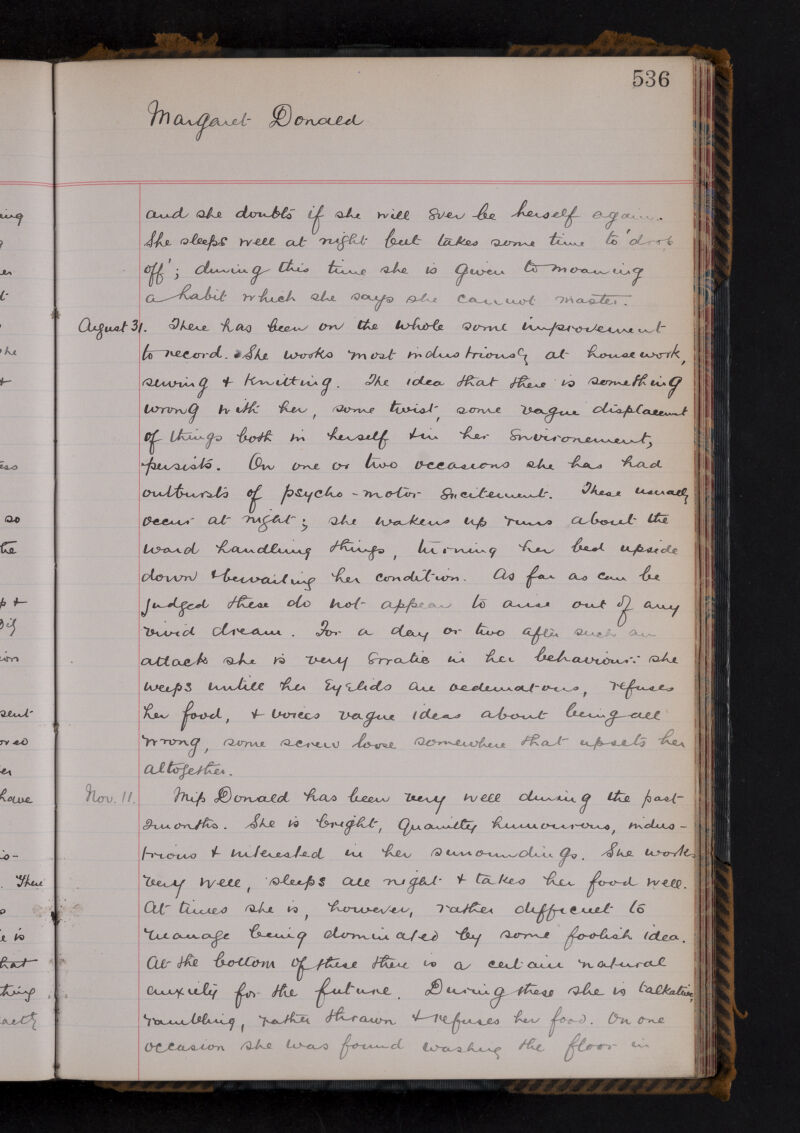 536
Margaret Donald
and she doubts if she will ever be herself again.
She sleeps well at night but takes some time to 'drop
off'; during this time she is given to moaning
a habit which she says she cannot master.
August 31. There has been on the whole some improvement
to record. She works most industriously at housework,
sewing & knitting. The idea that there is something
wrong with her, some twist, some vague displacement
of things both in herself & in her environement,
persists. On one or two occasions she has had
outbursts of psycho-motor excitement. These usually
occur at night; she wakens up runs about the
ward handling things, turning her bed upside
down & bewailing her condition. As far as can be
judged these do not appear to arise out of any
vivid dream. For a day or two after such an
attack she is very erratic in her behaviour: she
weeps untill her eyelids are oedematous, refuses
her food, & voices vague ideas about being all
wrong, some screw loose somewhere that upsets her
altogether.
Nov. 11. Miss Donald has been very well during the past
2 months. She is bright, quaintly humourous, indus-
trious & interested in her surroundings. She works
very well, sleeps all night & takes her food well.
At times she is, however, rather difficult to
manage being dominated by some foolish idea.
At the bottom of these there is a certain natural
anxiety for the future. During these she is talkative,
rambling, rather thrawn & refuses her food. On one
occasion she was found washing the floor in